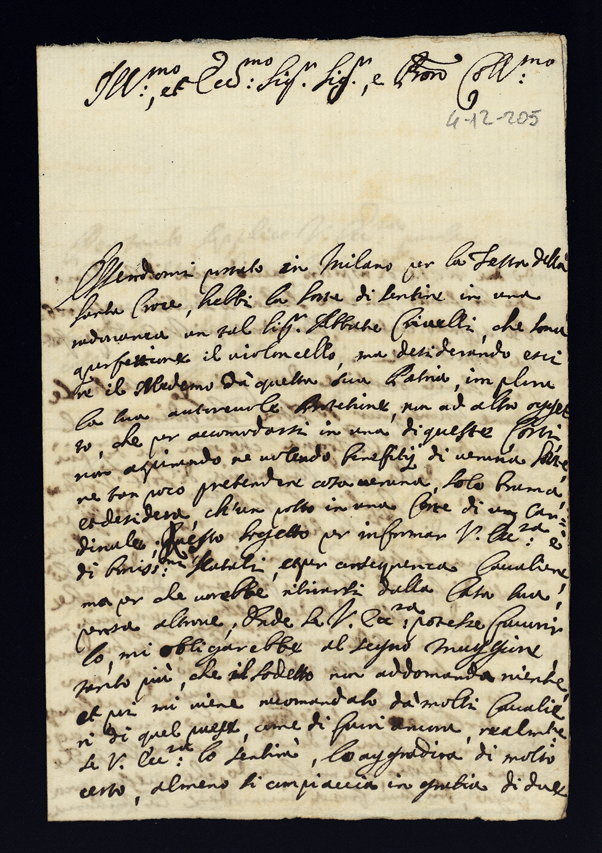 Ill.mo, et Ecc.mo: Sig.r Sig.r, e Pron Coll.mo:
4-12-205
Essendomi portato in Milano per la Festa della
Santa Croce, hebbi la sorte di sentire in una
radunanza un tal Sig.r Abbate Crivelli, che sona
à perfettione il violoncello, ma desiderando esci
re il Medemo da questa sua Patria, implora
la sua autorevole Protetione, non ad altro ogget
to, che per accomodarsi in una di queste Corti,
non aspirando ne volendo benefitij di veruna sorte,
ne tan poco pretendere cosa veruna, solo brama,
et desidera, ch'un posto in una Corte di un Car=
dinale, Questo sogetto per informar V. Ecc.za: è
di boniss:mi Natali, et per conseguenza Cavaliere
ma per che vorebbe ritirarsi dalla Casa sua,
pensa altrove, Onde se V. Ecc.za: potesse favorir
lo, mi obligarebbe al segno maggiore
tanto più, che il sodetto non addomanda niente,
et poi mi viene racomandato da molti Cavalie
ri di quel paese, come di fuori ancora, realmte
se V. Ecc.za: lo sentirà, lo aggradirà di molto
certo, almeno si compiaccia in gratia di due